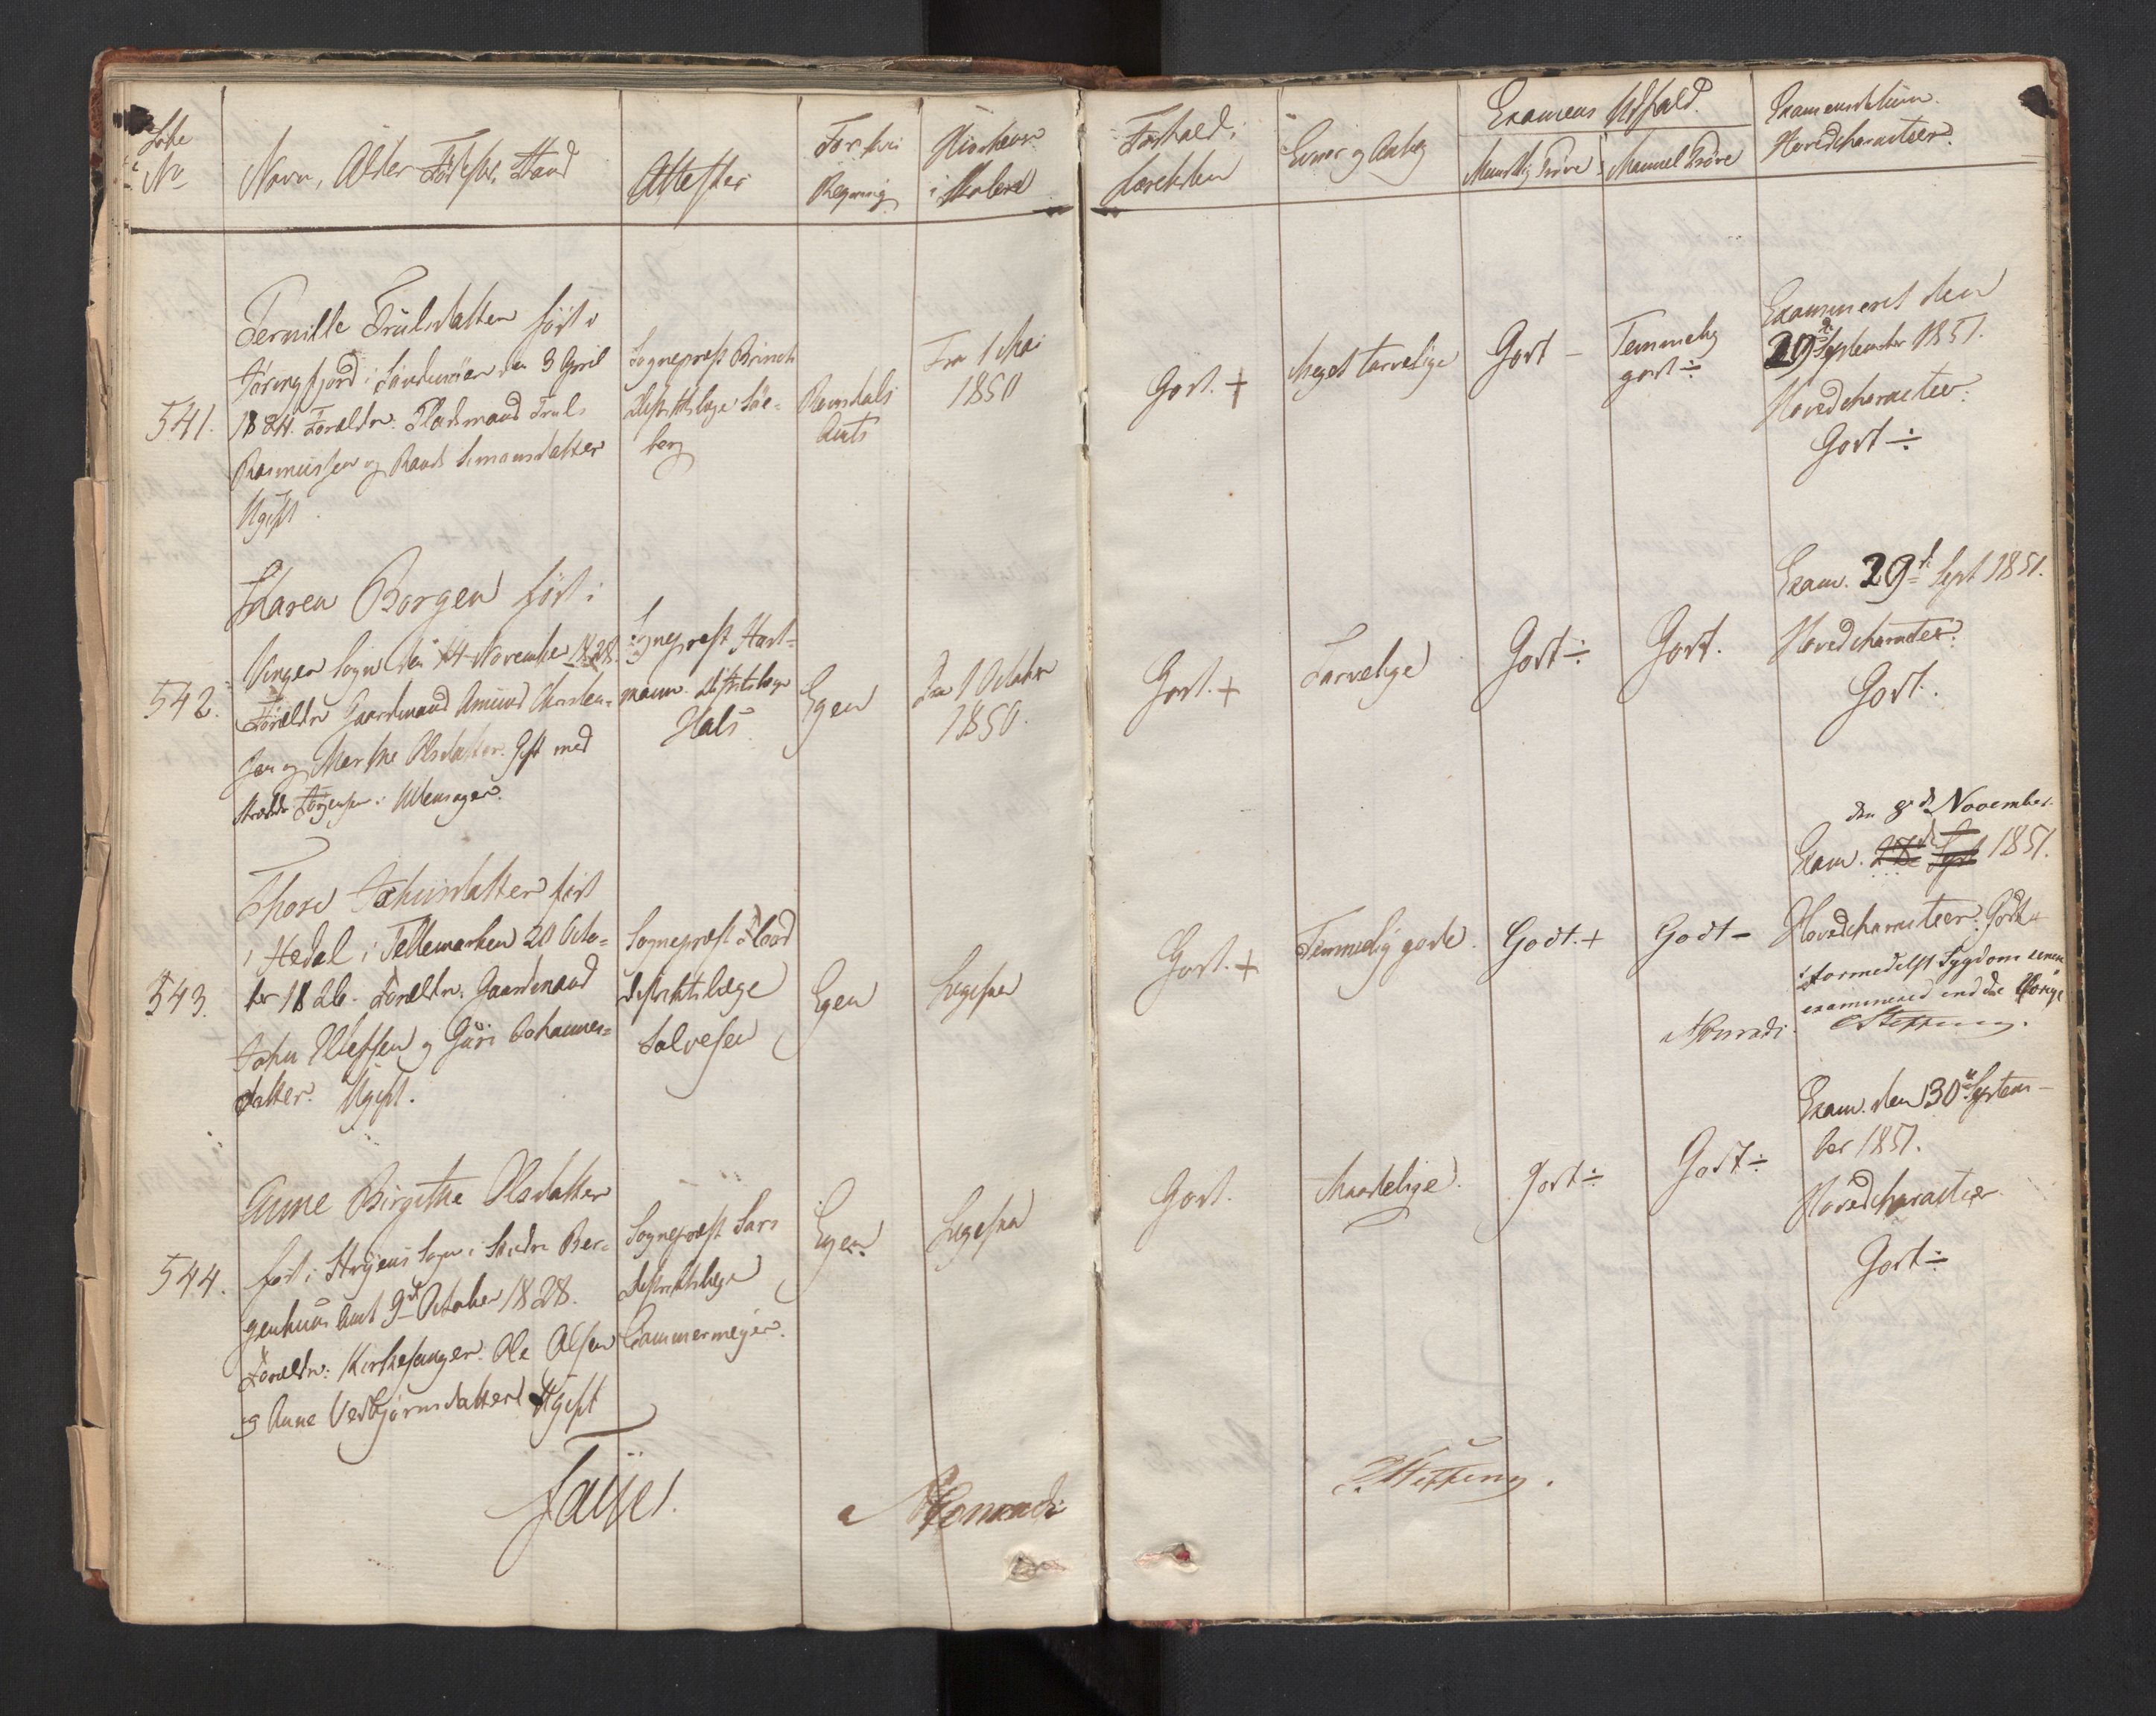 Løbe
No
Navn, Alder Fødested, Stand
Attester
For hvis
Regning
Hvorlænge
i Skolen
Forhold i
Læretiden
Evner og Anlæg
Examens Udfald.
Mundtlig Prøve
Manuel Prøve
Examensdatum.
Hovedcharacteer.
541.
Pernille Trulsdatter født i
Jøringfjord i Søndmøer den 3 April
1824. Forældre: Pladsmand Truls
Rasmussen og Randi Simonsdatter
Ugift
Sogneprest Brinch
Distriktslæge Søe=
berg
Romsdals
Amts
Fra 1 Mai
1850
Godt. +
Meget tarvelige
Godt -
Temmelig
godt ÷
Examineret den
29de September 1851.
Hovedcharacteer:
Godt ÷
542.
Maren Borgen født i
Vinger Sogn den 14 November 1828.
Forældre Gaardmand Amund Christen=
sen og Marthe Olsdatter. Gift med
Skrædder Jørgensen i Ullensager.
Sogneprest Hart=
mann. Distriktslæge
Hals
Egen
Fra 1 October
1850.
Godt. +
Tarvelige
Godt ÷
Godt.
Exam. 29d Sept 1851.
Hovedcharacteer:
Godt.
543.
Thore Johnsdatter født
i Hedal i Tellemarken 20 Octo=
ber 1826. Forældre: Gaardmand
John Olefsen og Guri Johannes=
datter. Ugift.
Sogneprest Flood
Distriktslæge
Salvesen
Egen
Ligesaa
Godt. +
Temmelig gode.
Godt. +
Godt -
den 8de November
Exam. 27d Sept 1851.
Hovedcharacteer: Godt
Formedelst Sygdom senere
examineret end de Øvrige
Monrad. Steffens.
544.
Anne Birgithe Olsdatter
født i Stryens Sogn i Søndre Ber=
genhuus Amt 9de October 1828.
Forældre: Kirkesanger Ole Olsen
og Anne Vedbjørnsdatter Ugift
Sogneprest Sars
Distriktslæge
Cammermeyer.
Egen
Ligesaa
Godt.
Maadelige.
Godt ÷
Godt ÷
Exam. den 30te Septem-
ber 1851.
Hovedcharacteer
Godt ÷
Faye.
Monrad
Steffens.